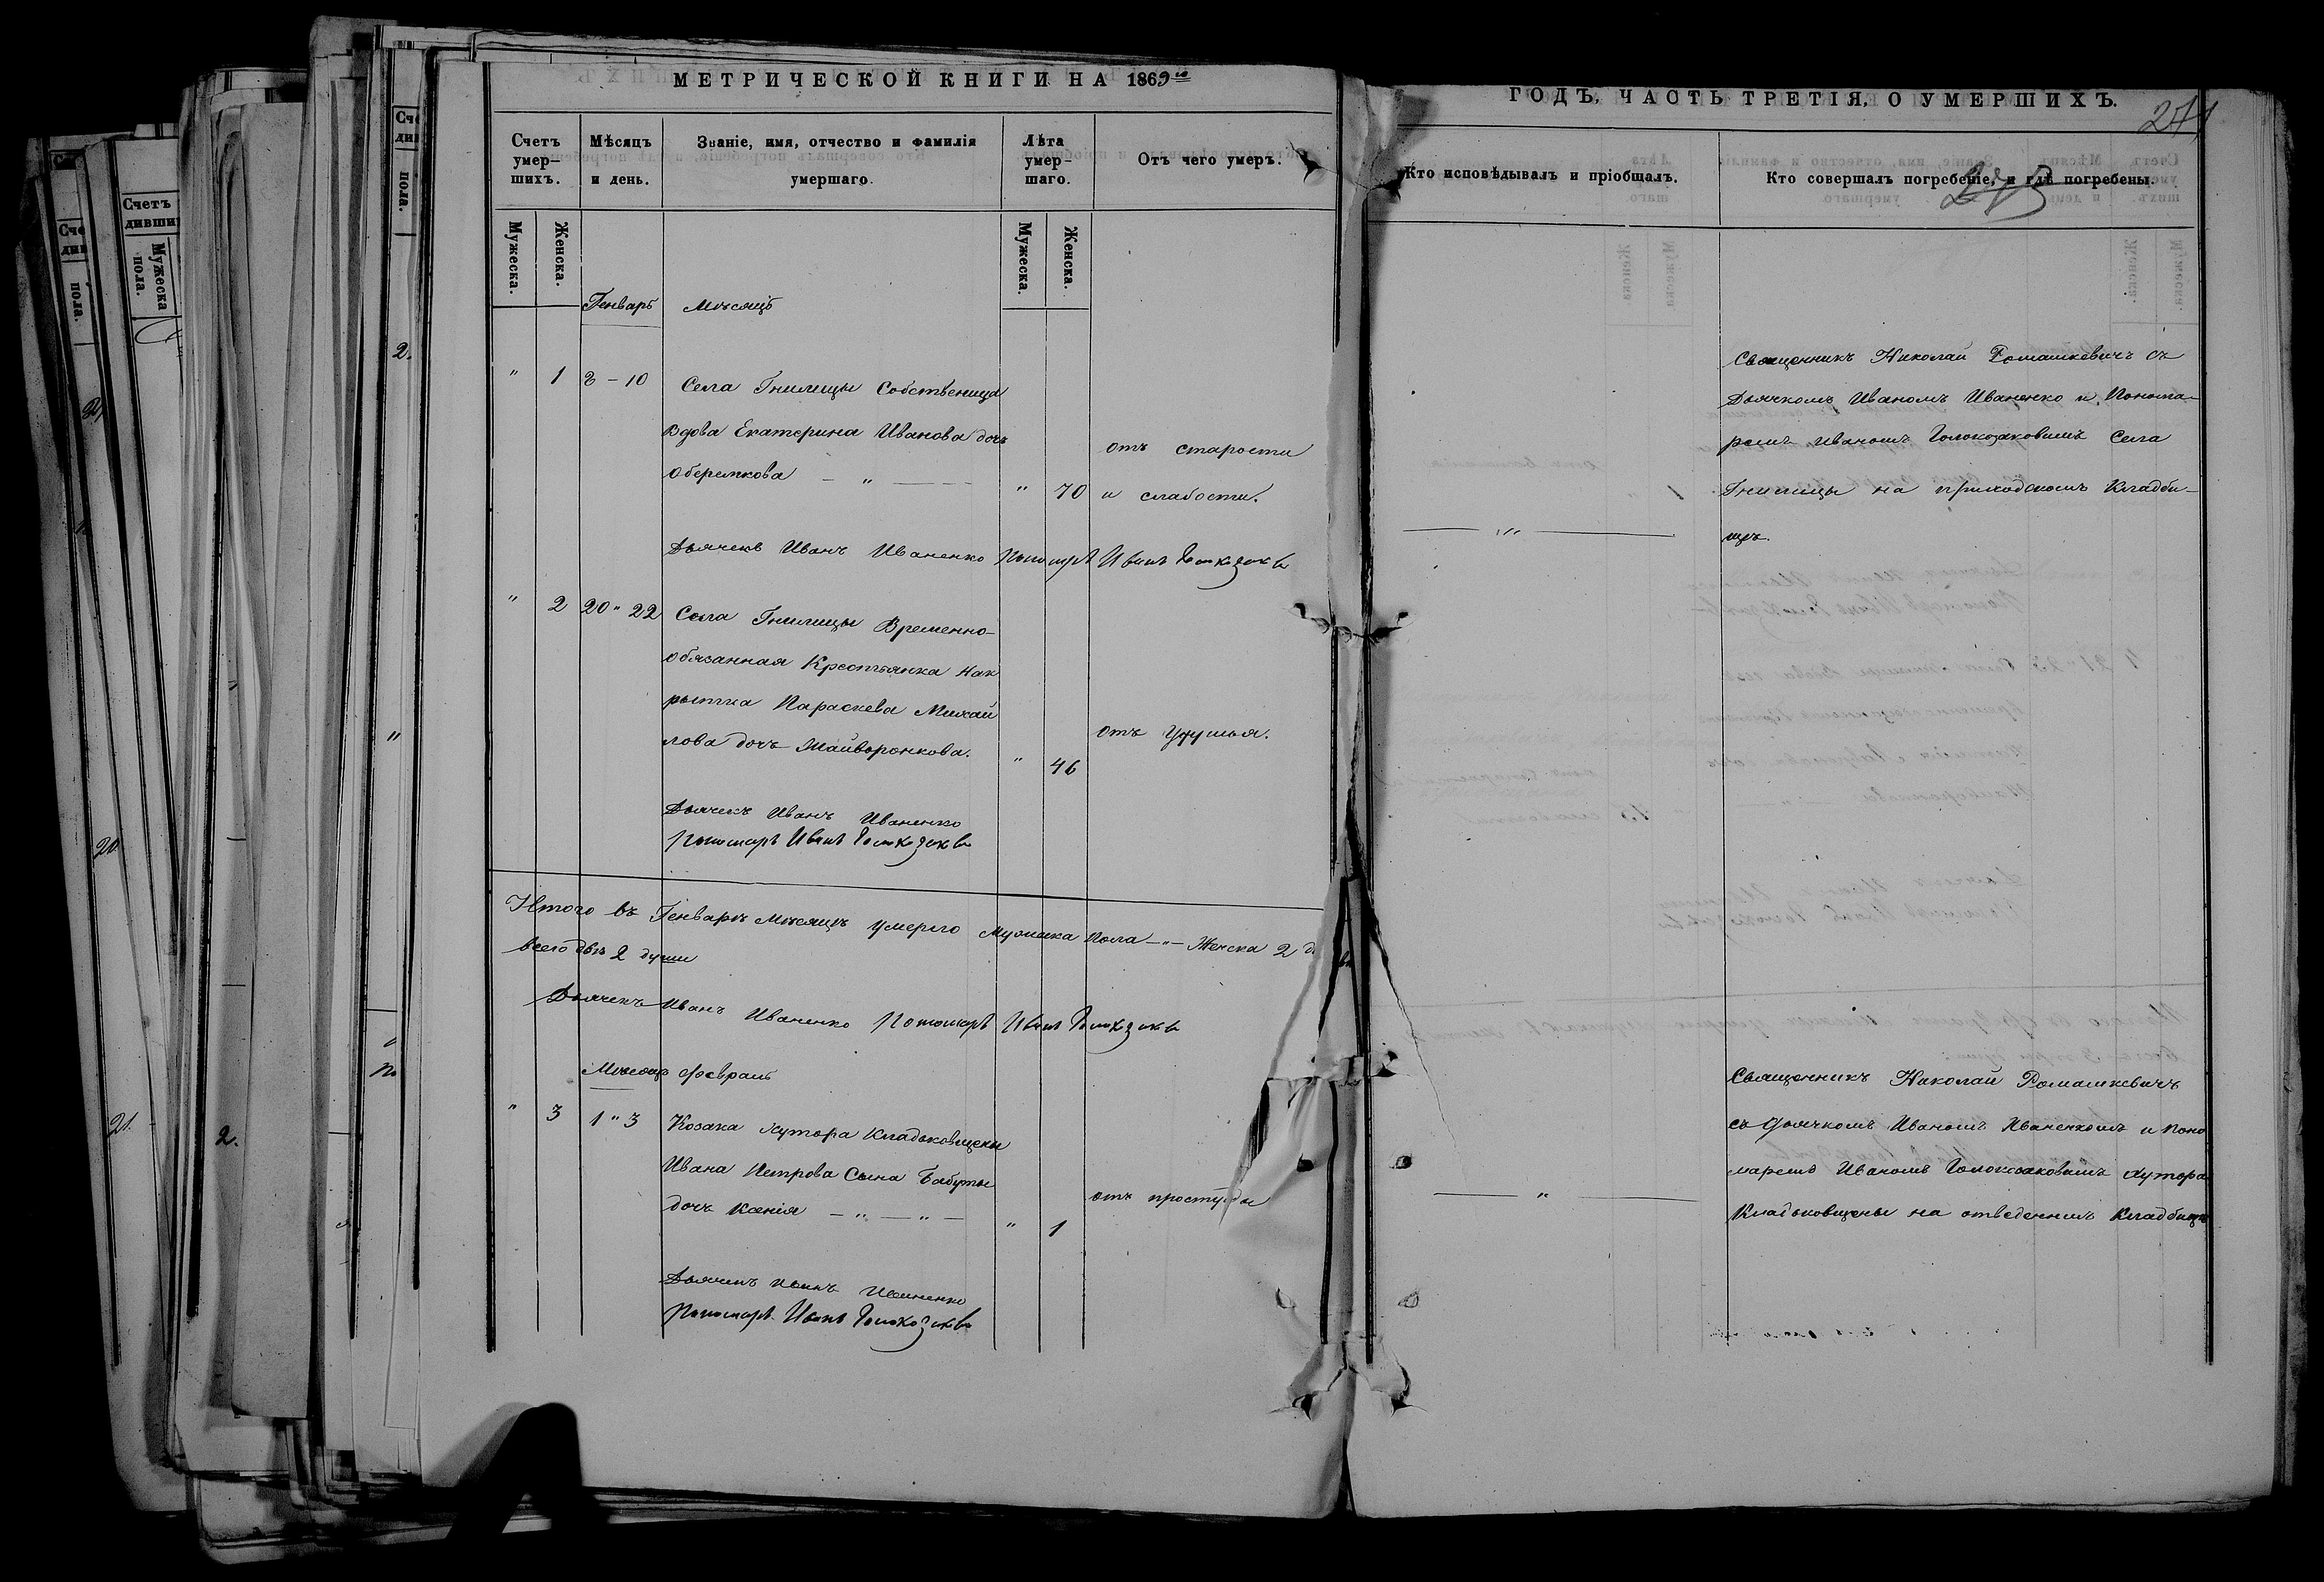 МЕТРИЧЕСКОЙ КНИГИ НА 1869го
Счетъ умер–шихъ.
Мѣсяцъ и день.
Званіе, имя, отчество и фамилія умершаго.
Лѣта умер–шаго.
Отъ чего умеръ.
Мужеска.
Женска.
Мужеска.
Женска.
Генварь Мѣсяцъ
" 1 8 – 10 Села Гнилицы Собственица
вдова Екатерина Иванова дочь
Оберемкова – " –
" 70
отъ старости
и слабости.
Дьячекъ Иванъ Иваненко Пономарь Иванъ
" 2 20 " 22 Села Гнилицы Временно–
обязанная Крестьянка
Параскева Михай
лова дочь Майворонкова.
" 46
отъ удушья.
Дьячекъ Иванъ Иваненко
Пономарь Иванъ
Итого въ Генварѣ Мѣсяцѣ умерло Мужеска Пола – " – Женска 2
всего двѣ 2 души
Дьячекъ Иванъ Иваненко Пономарь Иванъ
Мѣсяцъ Февраль
" 3 1 " 3 Козака Хутора Кладьковщены
Ивана Петрова Сына Бабуты
дочь Ксенія – " – " –
" 1
отъ простуды
Дьячекъ Иванъ Иваненко
Пономарь Иванъ
ГОДЪ, ЧАСТЬ ТРЕТІЯ, О УМЕРШИХЪ.
Кто исповѣдывалъ и пріобщалъ.
Кто совершалъ погребеніе, и гдѣ погребены.
Священникъ Николай Ромашкевичъ съ
Дьячкомъ Иваномъ Иваненко и Понома–
ремъ Иваномъ Голокозаковимъ Села
Гнилицы на приходскомъ Кладби–
щѣ.
– " –
Священникъ Николай Ромашкевичъ
съ Дьячкомъ Иваномъ Иваненкомъ и Поно
маремъ Иваномъ Голокозаковимъ Хутора
Кладьковщены на отведенномъ Кладбищѣ
– " –